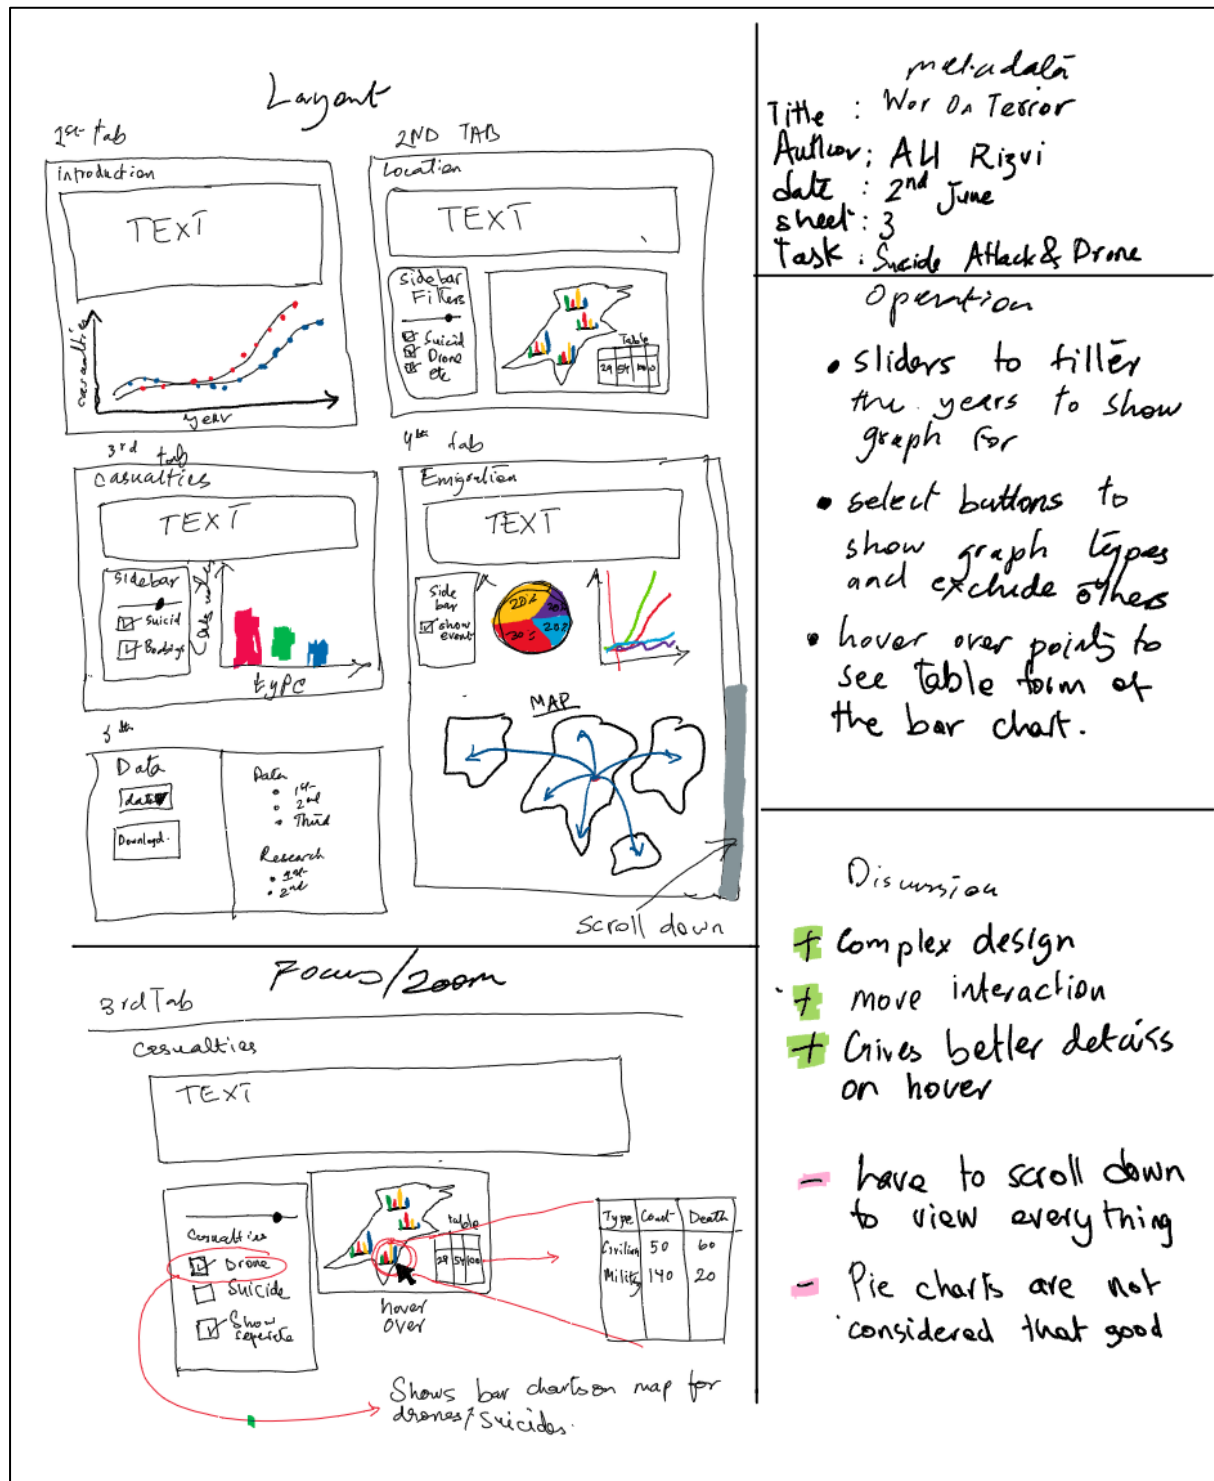 Layout
1st tab
introduction
TEXT
casualties
year
2ND TAB
Location
TEXT
Sidebar
Filters
Suicid
Drone
etc
Table
29 54 100
3rd tab
Casualties
TEXT
Sidebar
Suicid
type
4th tab
Emigration
TEXT
Side
bar
show
event
20%
20%
20%
30%
MAP
Scroll down
5th
Data
data
Download.
Data
1st
2nd
Third
Research
1st
2nd
Focus/Zoom
3rd Tab
Casualties
TEXT
Casualties
Drone
Suicide
Show
seperate
table
29 54 100
hover
over
Type Count Death
Civilian 50 60
Military 140 20
Shows bar charts on map for
drones/suicides.
metadata
Title : War On Terror
Author: Ali Rizvi
date : 2nd June
sheet: 3
Task : Suicide Attack & Drone
Operation
• sliders to filter
the years to show
graph for
• select buttons to
show graph types
and exclude others
• hover over points to
see table form of
the bar chart.
Discussion
+ Complex design
+ more interaction
+ Gives better details
on hover
- have to scroll down
to view everything
- Pie charts are not
considered that good